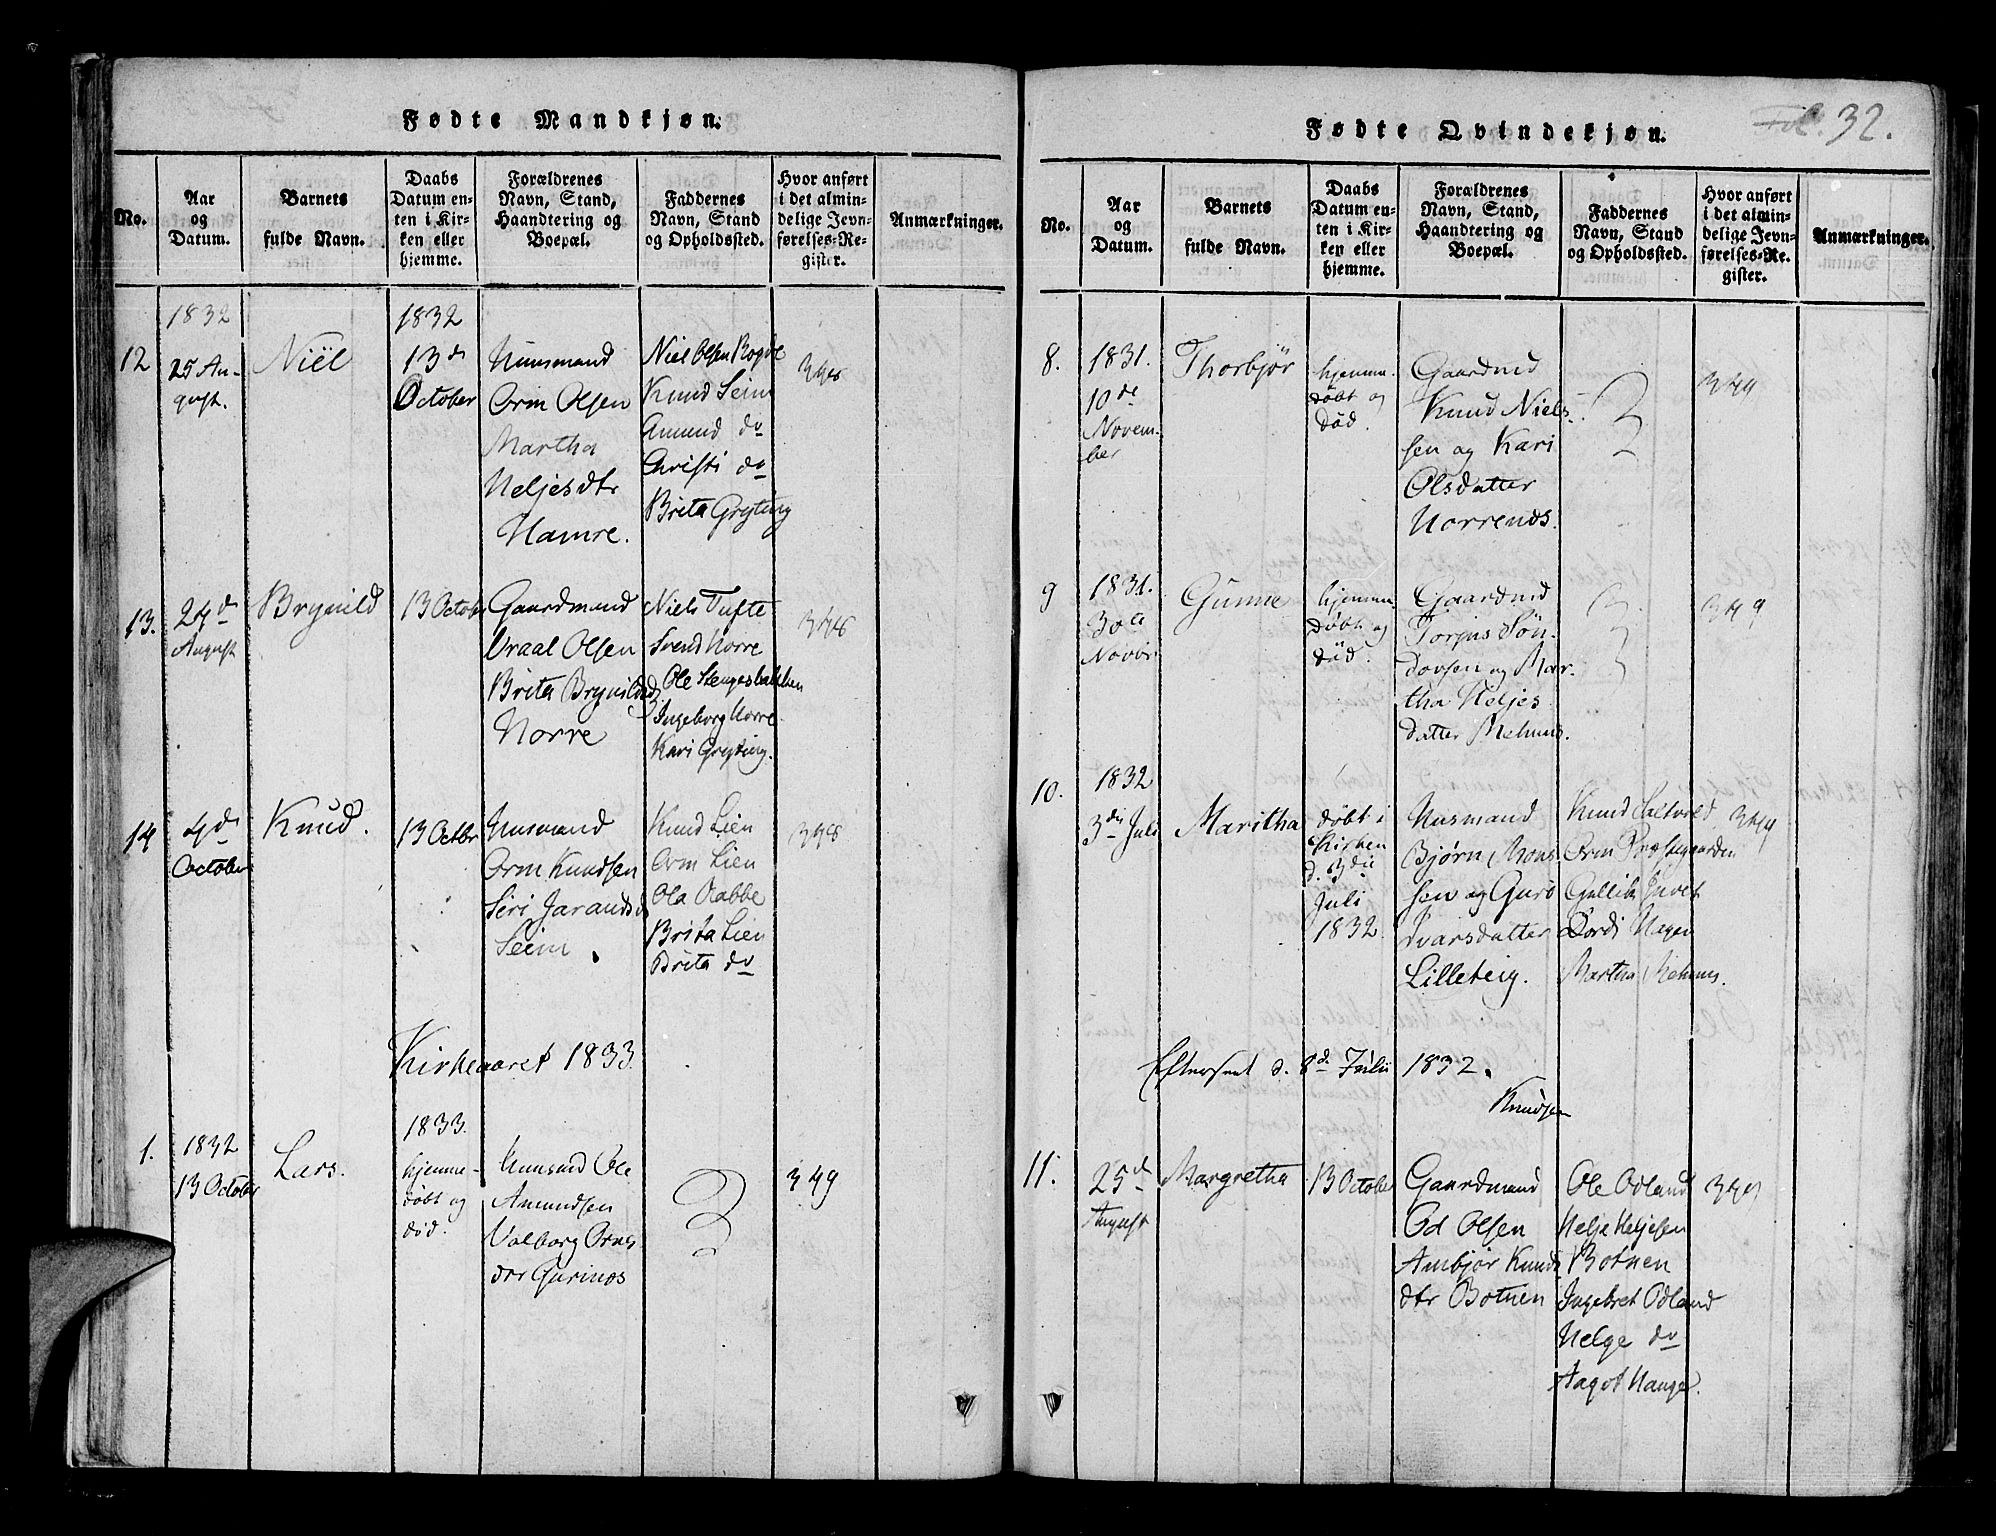 Fødte Mandkjøn.
No.
Aar
og
Datum.
Barnets
fulde Navn.
Daabs
Datum en-
ten i Kir-
ken eller
hjemme.
Forældrenes
Navn, Stand,
Haandtering og
Boepæl.
Faddernes
Navn, Stand
og Opholdssted.
Hvor anført
i det almin-
delige Jevn-
førelses-Re-
gister.
Anmærkninger.
12
1832
25 Au-
gust.
Niel
1832
13de
October
Huusmand
Orm Olsen
Martha
Heljesdtr
Hamre.
Niel Olsen Rogde
Knud Seim
Amund do
Christi do
Brita Gryting
348
13.
24d
August
Brynild
13 October
Gaardmand
Vraal Olsen
Brita Brynildsd
Norre
Niels Tufte
Svend Norre
Ole Stengesbakken
Ingeborg Norre
Kari Gryting.
348
14
4d
October
Knud.
13 Octbr
Husmand
Orm Knudsen
Siri Jarandsd
Seim
Knud Lien
Orm Lien
Ola Rabbe
Brita Lien
Brita do
348
Kirkeaaret 1833
1.
1832
13 October
Lars.
1833.
hjemme-
døbt og
død.
Huusmd Ole
Amundsen
Valborg Orms
dtr Gurinos
349
Fødte Qvindekjøn.
Fol. 32.
No.
Aar
og
Datum.
Barnets
fulde Navn.
Daabs
Datum en-
ten i Kir-
ken eller
hjemme.
Forældrenes
Navn, Stand,
Haandtering og
Boepæl.
Faddernes
Navn, Stand
og Opholdssted.
Hvor anført
i det almin-
delige Jevn-
førelses-Re-
gister.
Anmærkninger.
8.
1831.
10de
Novem-
ber
Thorbjør
hjemme
døbt og
død.
Gaardmd
Knud Niels-
sen og Kari
Olsdatter
Norrends.
349
9
1831.
30te
Novbr
Gunne
hjemme
døbt og
død.
Gaardmd
Torjus Søn-
dovsen og Mar-
tha Heljes
datter Mehuus.
349
10.
1832
3die Juli
Maritha
døbt i
Kirken
d. 3die
Juli
1832.
Husmand
Bjørn Mons
sen og Guro
Ivarsdatter
Lilleteig.
Knud Saltvold
Orm Præstegaarden
Gullik Juvet
Dordi Hagen
Martha Mehuus.
349
Efterseet d. 8d Julii 1832.
Knudsen
11.
25d
August
Margretha
13 October
Gaardmand
Od Olsen
Ambjør Knuds
dtr Botnen
Ole Odland
Helje Heljesen
Botnen
Ingebret Odland
Helge do
Aagot Hauge.
349